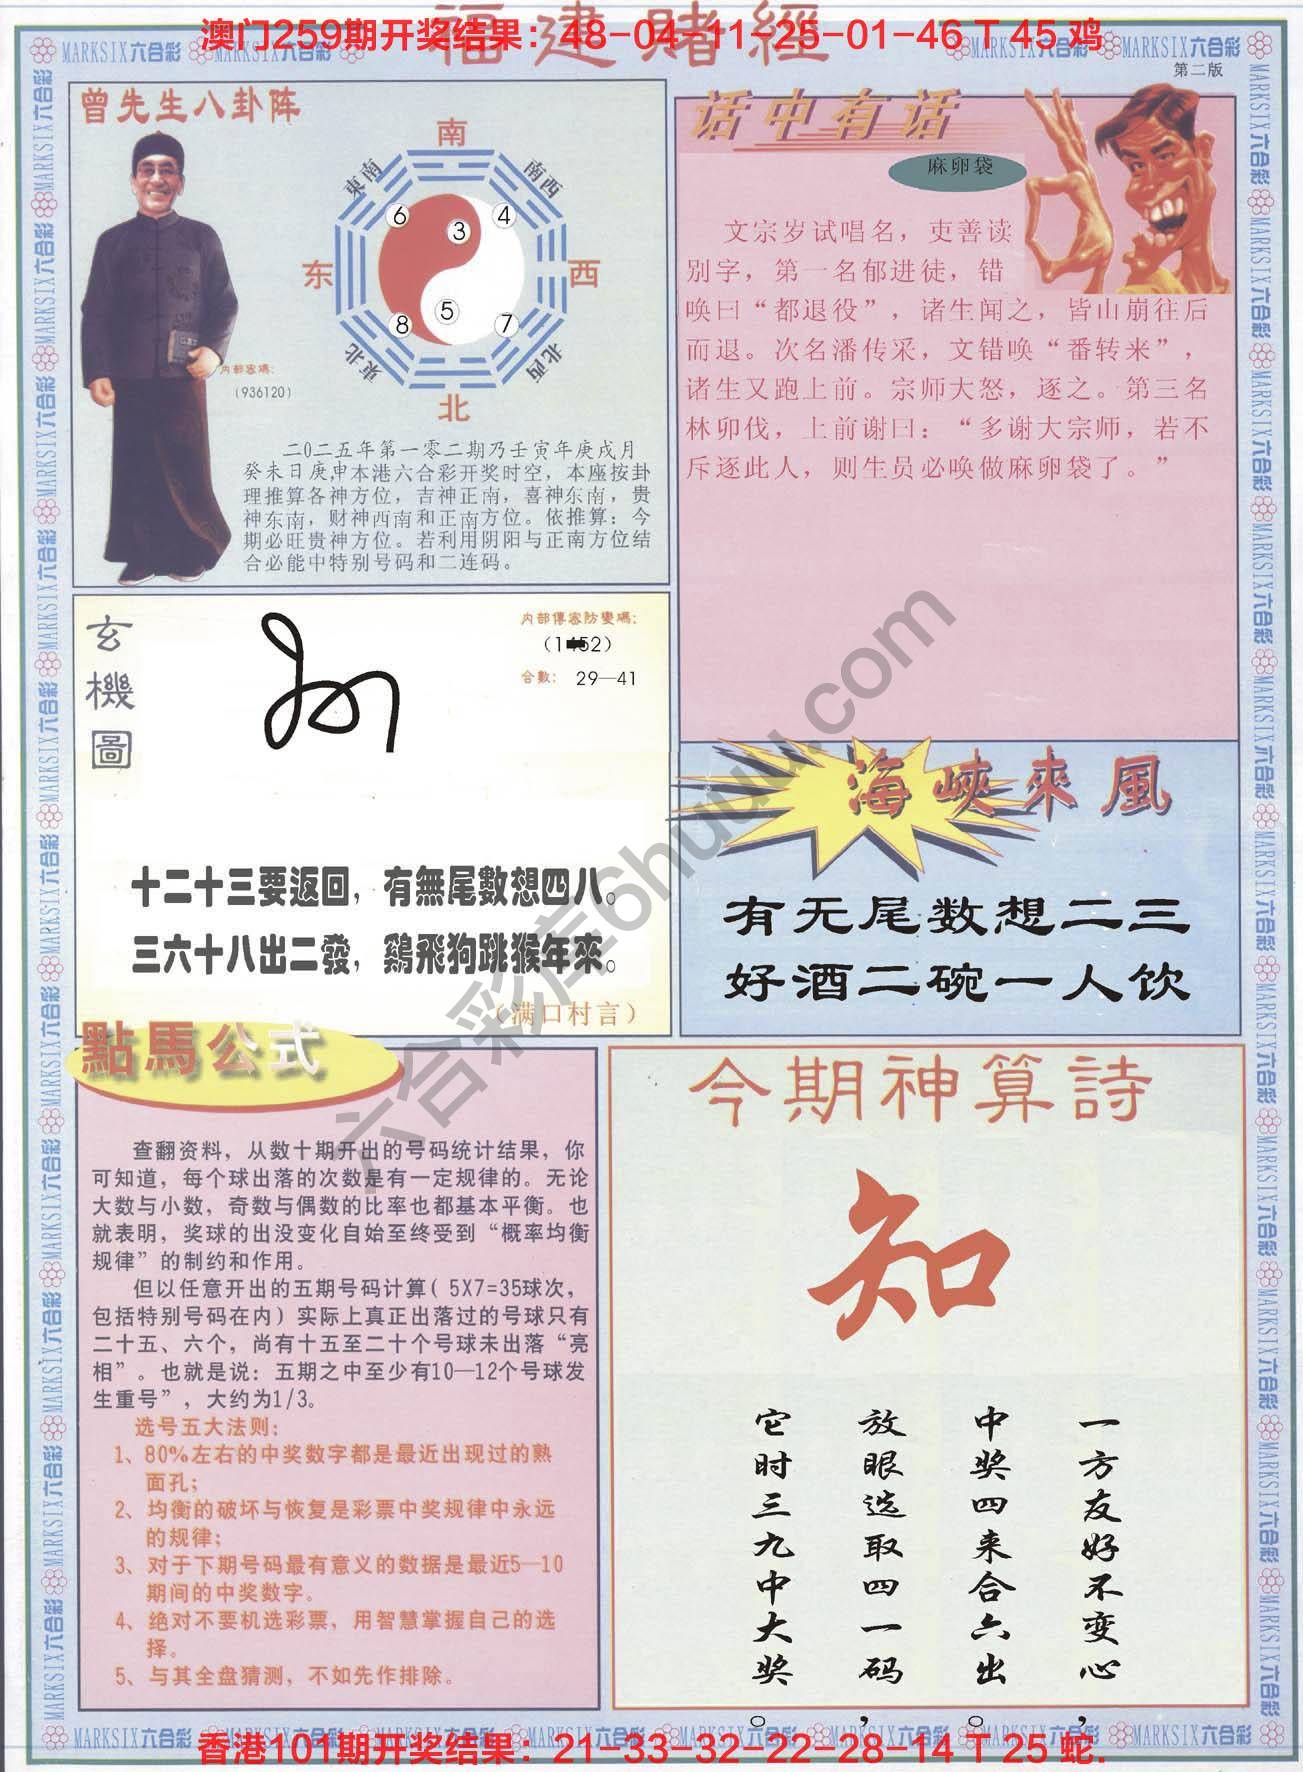 福建賭經
澳门259期开奖结果：48-04-11-25-01-46 T 45 鸡
MARKSIX六合彩
第二版
曾先生八卦阵
南
東南
南西
6
3
4
东
西
5
8
7
東北
北西
北
内部密碼：
(936120)
二0二五年第一零二期乃壬寅年庚戌月
癸未日庚,申本港六合彩开奖时空，本座按卦
理推算各神方位，吉神正南，喜神东南，贵
神东南，财神西南和正南方位。依推算：今
期必旺贵神方位。若利用阴阳与正南方位结
合必能中特别号码和二连码。
话中有话
麻卵袋
文宗岁试唱名，吏善读
别字，第一名郁进徒，错
唤曰“都退役”，诸生闻之，皆山崩往后
而退。次名潘传采，文错唤“番转来”，
诸生又跑上前。宗师大怒，逐之。第三名
林卯伐，上前谢曰：“多谢大宗师，若不
斥逐此人，则生员必唤做麻卵袋了。”
玄機圖
内部傳密防變碼：
合數： 29—41
十二十三要返回，有無尾數想四八。
三六十八出二發，鷄飛狗跳猴年來。
（满口村言）
海峽來風
有无尾数想二三
好酒二碗一人饮
點馬公式
查翻资料，从数十期开出的号码统计结果，你
可知道，每个球出落的次数是有一定规律的。无论
大数与小数，奇数与偶数的比率也都基本平衡。也
就表明，奖球的出没变化自始至终受到“概率均衡
规律”的制约和作用。
但以任意开出的五期号码计算( 5X7=35球次，
包括特别号码在内）实际上真正出落过的号球只有
二十五、六个，尚有十五至二十个号球未出落“亮
相”。也就是说：五期之中至少有10—12个号球发
生重号”，大约为1/3。
选号五大法则：
1、80%左右的中奖数字都是最近出现过的熟
面孔；
2、均衡的破坏与恢复是彩票中奖规律中永远
的规律；
3、对于下期号码最有意义的数据是最近5—10
期间的中奖数字。
4、绝对不要机选彩票，用智慧掌握自己的选
择。
5、与其全盘猜测，不如先作排除。
今期神算詩
知
一方友好不变心，
中奖四来合六出。
放眼选取四一码，
它时三九中大奖。
六合彩库6huuu.com
香港101期开奖结果：21-33-32-22-28-14 T 25 蛇.